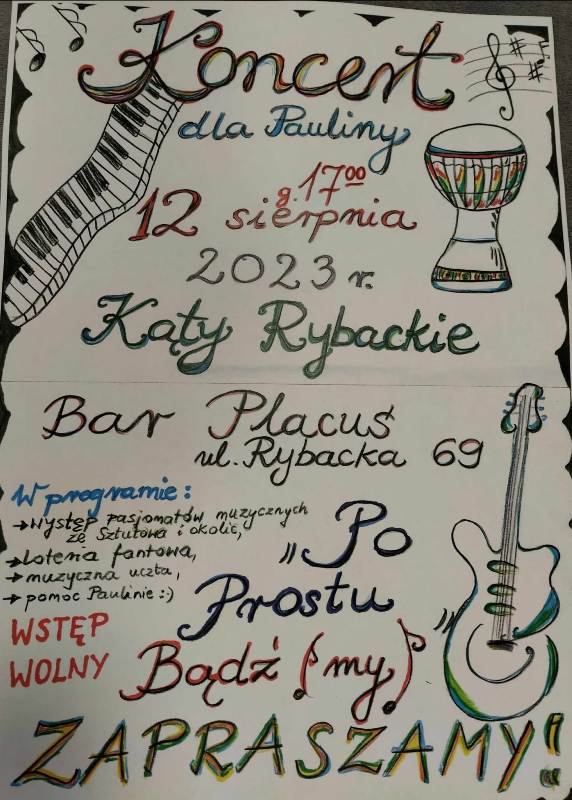 Koncert
dla Pauliny
g. 17⁰⁰
12 sierpnia
2023 r.
Kąty Rybackie
Bar Placuś
ul. Rybacka 69
W programie:
→ Występ pasjonatów muzycznych
ze Sztutowa i okolic,
→ Loteria fantowa,
→ muzyczna uczta,
→ pomoc Paulinie :)
WSTĘP
WOLNY
"Po
Prostu
Bądź (my)"
ZAPRASZAMY!